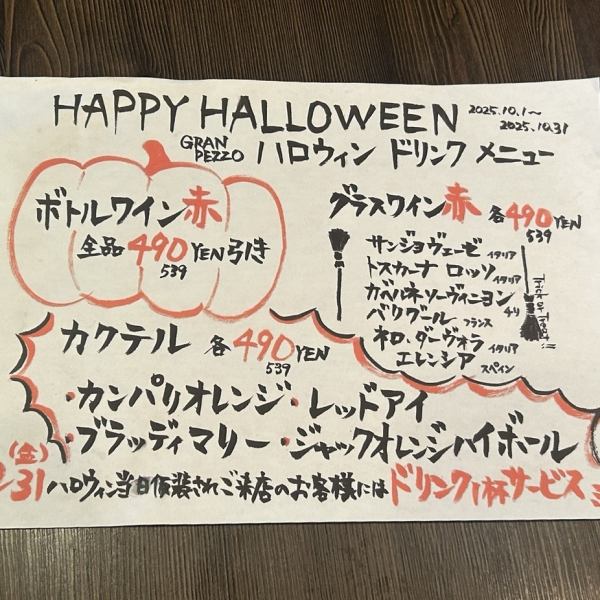 HAPPY HALLOWEEN
2025.10.1～
2025.10.31
GRAN
PEZZO
ハロウィン ドリンク メニュー
ボトルワイン赤
全品490YEN引き
539
グラスワイン赤 各490YEN
539
サンジョヴェーゼ イタリア
トスカーナ ロッソ イタリア
カベルネ・ソーヴィニヨン チリ
バリクール フランス
ネロ・ダーヴォラ イタリア
エレンシア スペイン
Trick or Treat!!
カクテル 各490YEN
539
・カンパリオレンジ・レッドアイ
・ブラッディマリー・ジャックオレンジハイボール
(金)
31 ハロウィン当日仮装されご来店のお客様にはドリンク1杯サービス